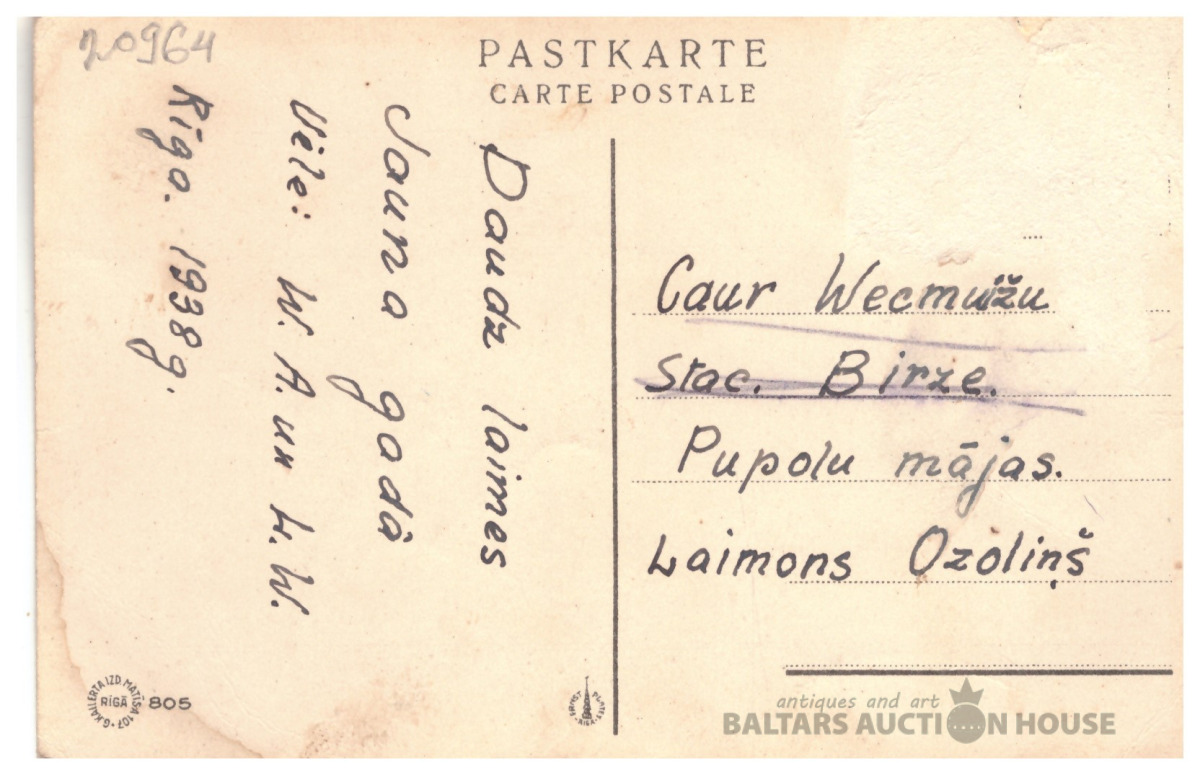 20964
PASTKARTE
CARTE POSTALE
Daudz laimes
Jauna gadā
Vēle: W. A. un H. W.
Rīga. 1938 g.
Caur Wecmuižu
Stac. Birze.
Pupolu mājas.
Laimons Ozoliņš
G. KALLERTA IZD. MATĪSA 107
RĪGĀ
805
antiques and art
BALTARS AUCTION HOUSE